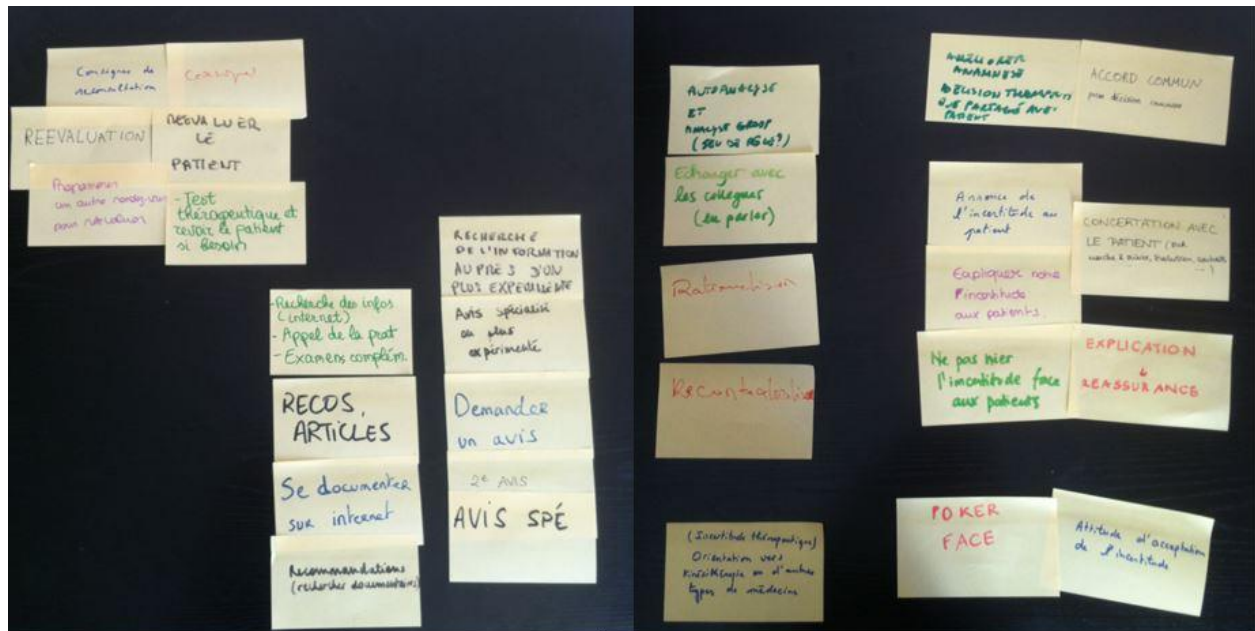 Consignes de
reconsultation
REEVALUATION
REEVALUER
LE
PATIENT
Programmer
un autre rendez-vous
pour réévaluation
- Test
thérapeutique et
revoir le patient
si besoin
- Recherche des infos
(internet)
- Appel de la prat
- Examens complém.
RECOS,
ARTICLES
Se documenter
sur internet
Recommandations
(recherches documentaires)
RECHERCHE
DE L'INFORMATION
AUPRÈS D'UN
PLUS EXPERIMENTE
Avis spécialisé
ou plus
expérimenté
Demander
un avis
2e AVIS
AVIS SPÉ
AUTOANALYSE
ET
ANALYSE GROUP
(JEU DE RÔLE?)
Echanger avec
les collègues
(en parler)
Rationalisation
Recontextualiser
(Incertitude thérapeutique)
Orientation vers
kinésithérapie ou d'autres
types de médecine
AMÉLIORER
ANAMNÈSE
DÉCISION THERAPEUTI
QUE PARTAGÉ AVEC
PATIENT
ACCORD COMMUN
pour décision commune
Annonce de
l'incertitude au
patient
CONCERTATION AVEC
LE PATIENT (sur
marche à suivre, évolution, souhaits
...)
Expliquer notre
incertitude
aux patients.
Ne pas nier
l'incertitude face
aux patients
EXPLICATION
↓
REASSURANCE
POKER
FACE
Attitude d'acceptation
de l'incertitude